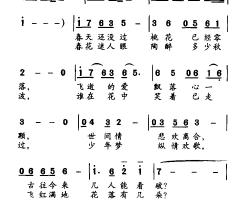 1 - - - ) i 7 6 3 5 - 3 6 0 5 6 1
春天还没过 桃花 已经零
春花迷人眼 陶醉 多少秋
2 - - 0 i 7 6 3 5 6 3 5 0 5 6 1 - 6
落, 飞逝的爱 飘落心一
波, 谁在花中 笑着已走
3 - - - 0 3 5 6 3 - 0 2 3 5 6 3
颗, 世间情 悲欢离合,
过, 少年梦 纵情欢歌,
0 6 6 5 6 - 1 . 6 2 2 i 7 - - -
古往今来 几人能看破?
飞红满地 花落有几朵?